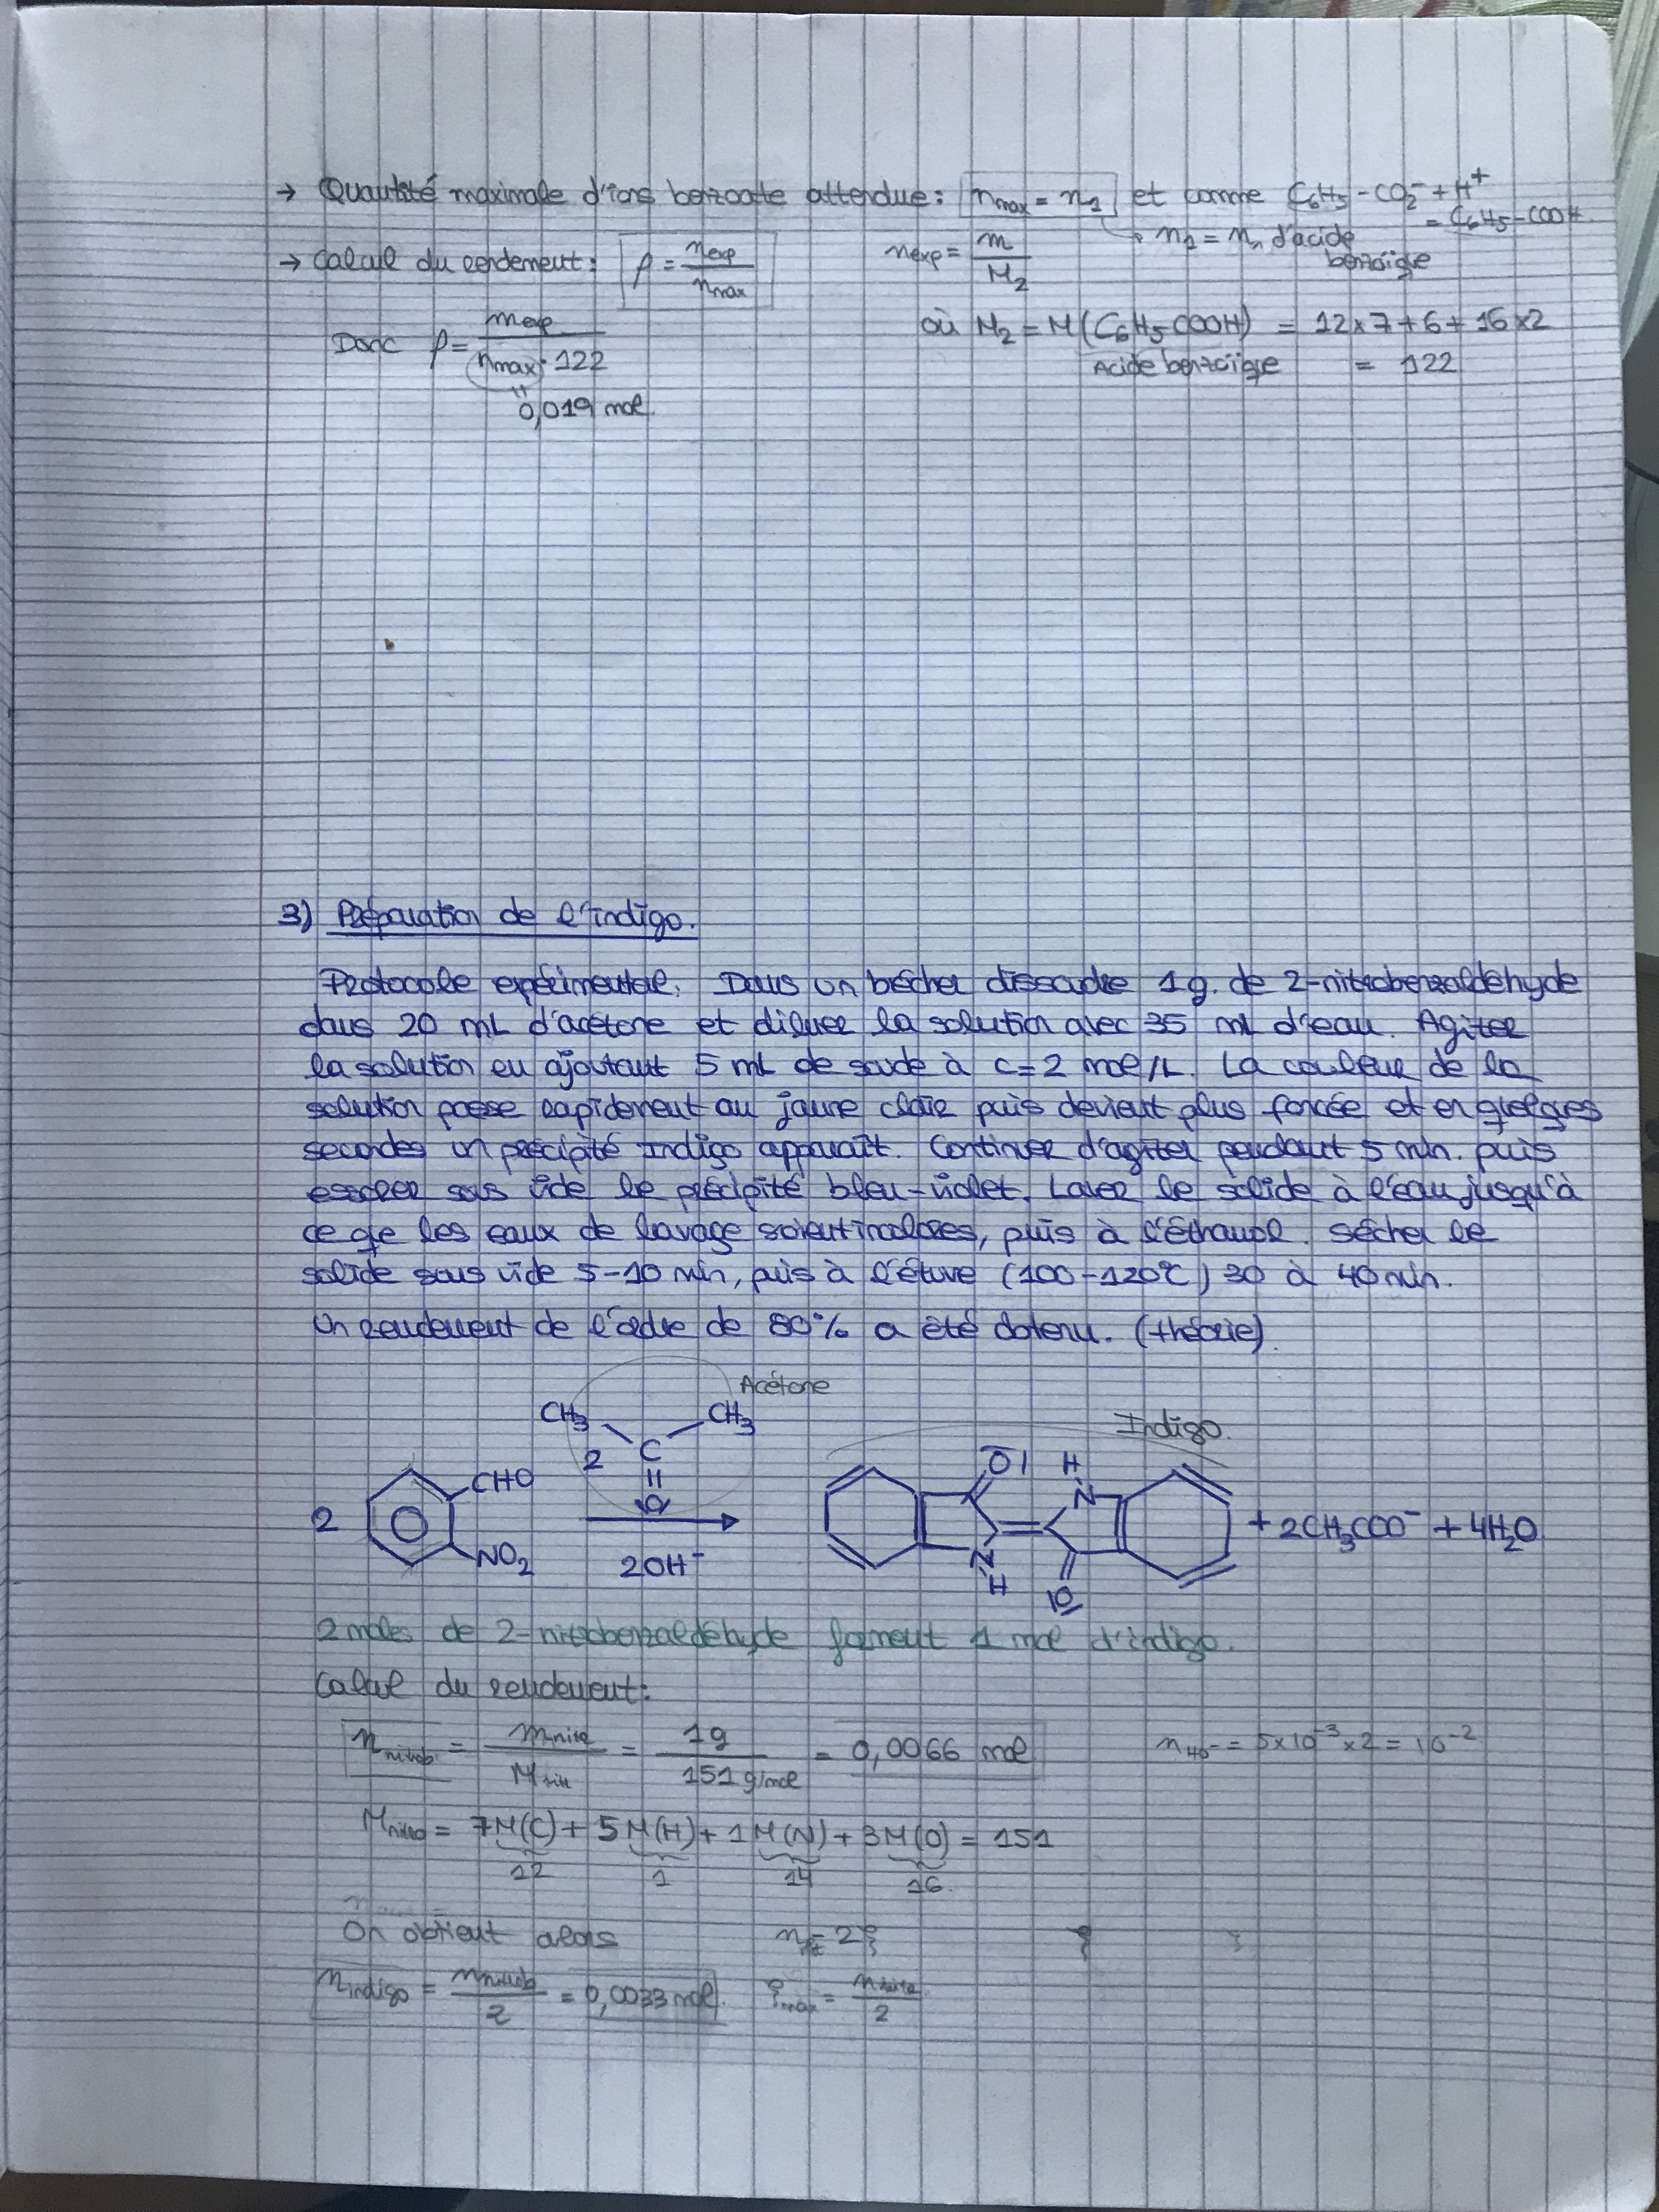 → Quantité maximale d'ions benzoate attendue : n_max = n_1 et comme C6H5-CO2⁻ + H⁺
= C6H5-COOH
↳ n_2 = n_1 d'acide benzoïque
→ Calcul du rendement : ρ = n_exp / n_max n_exp = m / M_2
où M_2 = M(C6H5COOH) = 12×7+6+16×2
Donc ρ = m_exp / n_max · 122
Acide benzoïque = 122
0,019 mol
3) Préparation de l'indigo.
Protocole expérimental. Dans un bécher dissoudre 1 g. de 2-nitrobenzaldéhyde
dans 20 mL d'acétone et diluer la solution avec 35 mL d'eau. Agiter
la solution en ajoutant 5 mL de soude à c = 2 mol/L. La couleur de la
solution passe rapidement au jaune clair puis devient plus foncée et en quelques
secondes un précipité Indigo apparaît. Continuer d'agiter pendant 5 min. puis
essorer sous vide le précipité bleu-violet. Laver le solide à l'eau jusqu'à
ce que les eaux de lavage soient incolores, puis à l'éthanol. Sécher le
solide sous vide 5-10 min, puis à l'étuve (100-120°C) 30 à 40 min.
Un rendement de l'ordre de 80% a été obtenu. (théorie).
Acétone
CH3 CH3
Indigo.
2 C
O
2 CHO
NO2
2OH⁻
O H
N
N
H
O
+ 2CH3COO⁻ + 4H2O
2 moles de 2-nitrobenzaldéhyde forment 1 mol d'indigo.
Calcul du rendement :
n_nitrob = m_nitro / M_nitro = 1g / 151 g/mol = 0,0066 mol n_HO⁻ = 5×10⁻³×2 = 10⁻²
M_nitro = 7M(C) + 5M(H) + 1M(N) + 3M(O) = 151
12 1 14 16
On obtient alors n = 2ξ
n_indigo = n_nitrob / 2 = 0,0033 mol. ξ_max = n_nitro / 2